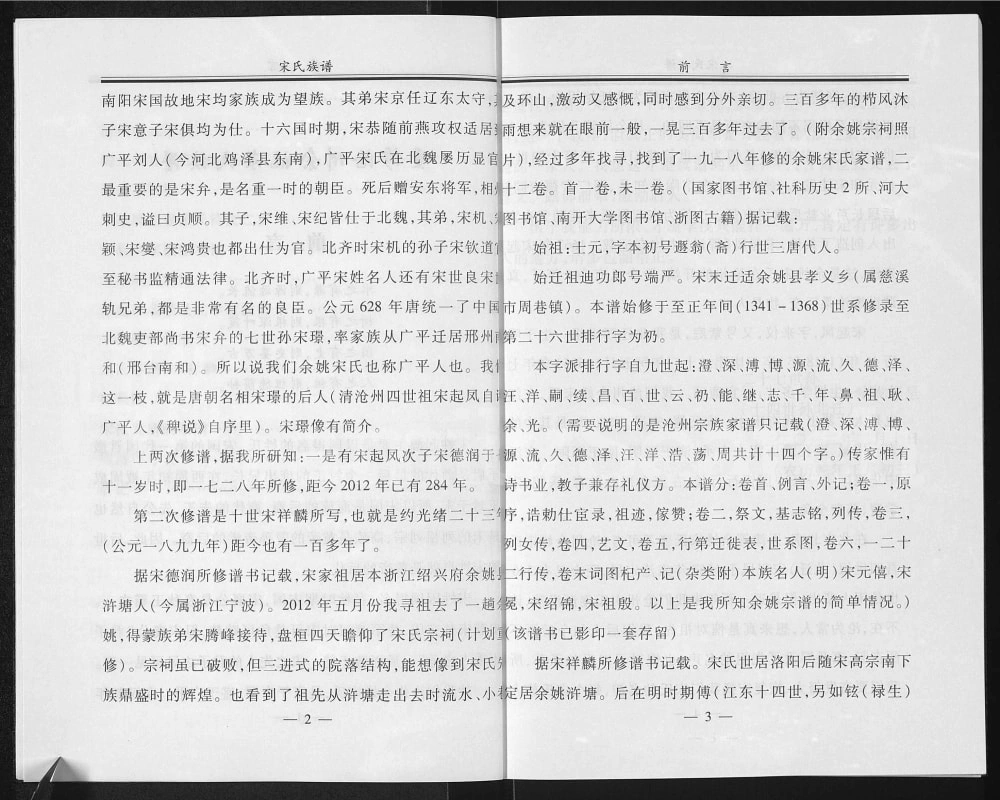 宋氏族谱
南阳宋国故地宋均家族成为望族。其弟宋京任辽东太守,
子宋意子宋俱均为仕。十六国时期,宋恭随前燕攻权适居
广平刘人(今河北鸡泽县东南),广平宋氏在北魏屡历显官
最重要的是宋弁,是名重一时的朝臣。死后赠安东将军,相
刺史,谥曰贞顺。其子,宋维、宋纪皆仕于北魏,其弟,宋机、
颖、宋燮、宋鸿贵也都出仕为官。北齐时宋机的孙子宋钦道
至秘书监精通法律。北齐时,广平宋姓名人还有宋世良宋
轨兄弟,都是非常有名的良臣。公元 628 年唐统一了中国
北魏吏部尚书宋弁的七世孙宋璟,率家族从广平迁居邢州
和(邢台南和)。所以说我们余姚宋氏也称广平人也。我
这一枝,就是唐朝名相宋璟的后人(清沧州四世祖宋起凤自
广平人,《稗说》自序里)。宋璟像有简介。
上两次修谱,据我所研知:一是有宋起凤次子宋德润于
十一岁时,即一七二八年所修,距今 2012 年已有 284 年。
第二次修谱是十世宋祥麟所写,也就是约光绪二十三
(公元一八九九年)距今也有一百多年了。
据宋德润所修谱书记载,宋家祖居本浙江绍兴府余姚
浒塘人(今属浙江宁波)。2012 年五月份我寻祖去了一趟
姚,得蒙族弟宋腾峰接待,盘桓四天瞻仰了宋氏宗祠(计划
修)。宗祠虽已破败,但三进式的院落结构,能想像到宋氏
族鼎盛时的辉煌。也看到了祖先从浒塘走出去时流水、小
— 2 —
前 言
及环山,激动又感慨,同时感到分外亲切。三百多年的栉风沐
雨想来就在眼前一般,一晃三百多年过去了。(附余姚宗祠照
片),经过多年找寻,找到了一九一八年修的余姚宋氏家谱,二
十二卷。首一卷,未一卷。(国家图书馆、社科历史 2 所、河大
图书馆、南开大学图书馆、浙图古籍)据记载:
始祖:十元,字本初号遯翁(斋)行世三唐代人。
始迁祖迪功郎号端严。宋末迁适余姚县孝义乡(属慈溪
市周巷镇)。本谱始修于至正年间(1341 - 1368)世系修录至
第二十六世排行字为礽。
本字派排行字自九世起:澄、深、溥、博、源、流、久、德、泽、
汪、洋、嗣、续、昌、百、世、云、礽、能、继、志、千、年、鼻、祖、耿、
余、光。(需要说明的是沧州宗族家谱只记载(澄、深、溥、博、
源、流、久、德、泽、汪、洋、浩、荡、周共计十四个字。)传家惟有
诗书业,教子兼存礼仪方。本谱分:卷首、例言、外记;卷一,原
序,诰勅仕宦录,祖迹,傢赞;卷二,祭文,基志铭,列传,卷三,
列女传,卷四,艺文,卷五,行第迁徙表,世系图,卷六,一二十
二行传,卷末词图杞产、记(杂类附)本族名人(明)宋元僖,宋
冕,宋绍锦,宋祖殷。以上是我所知余姚宗谱的简单情况。)
(该谱书已影印一套存留)
据宋祥麟所修谱书记载。宋氏世居洛阳后随宋高宗南下
定居余姚浒塘。后在明时期傅(江东十四世,另如铉(禄生)
— 3 —